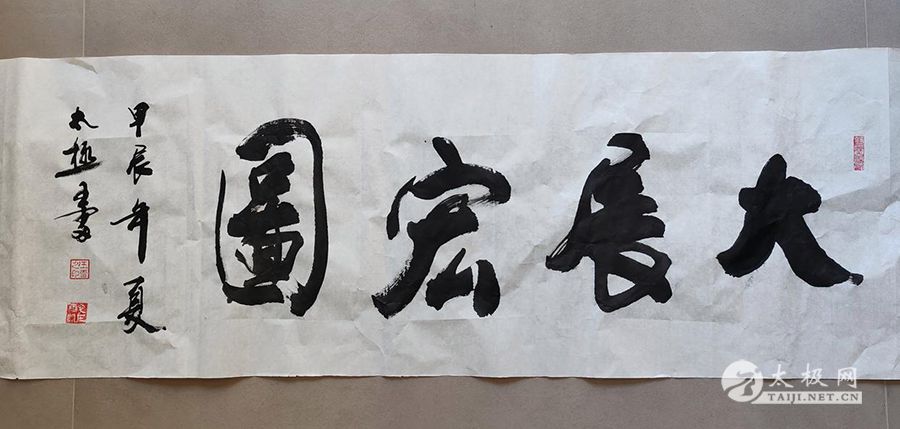 大展宏圖
甲辰年夏
太極
太极网
TAIJI.NET.CN